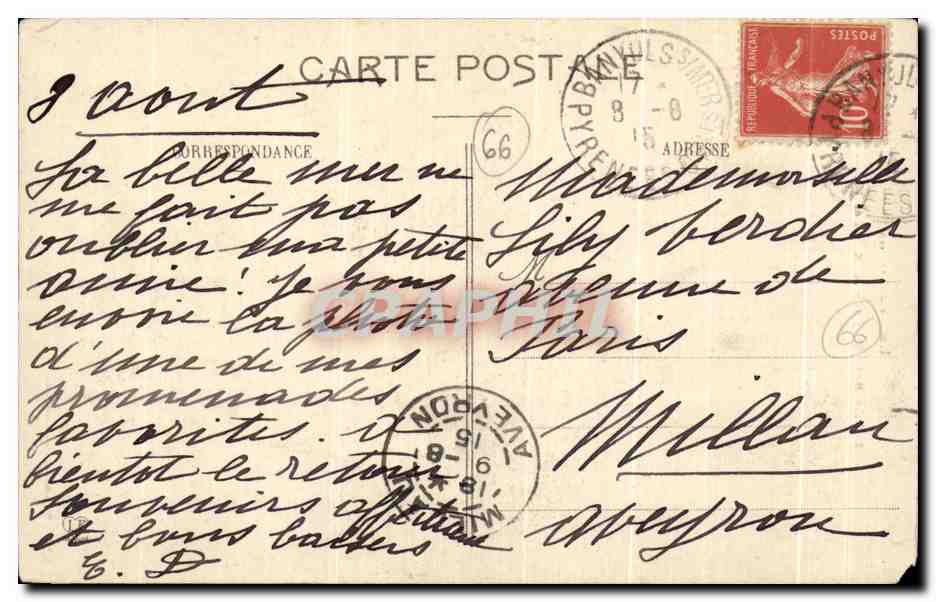 CARTE POSTALE
CORRESPONDANCE
8 aout
La belle mer ne
me fait pas
oublier ma petite
amie! Je vous
envoie la photo
d'une de mes
promenades
favorites. à
bientot le retour
Souvenirs affectueux
et bons baisers
E. D
66
BANYULS S/MER
PYRENEES
17 *
8 - 8
15
POSTES
REPUBLIQUE FRANÇAISE
10
BANYULS
ADRESSE
Mademoiselle
Lily Verdier
avenue de
Paris
Millau
aveyron
66
MILLAU
18 *
9 - 8
15
AVEYRON
CPAPHIL